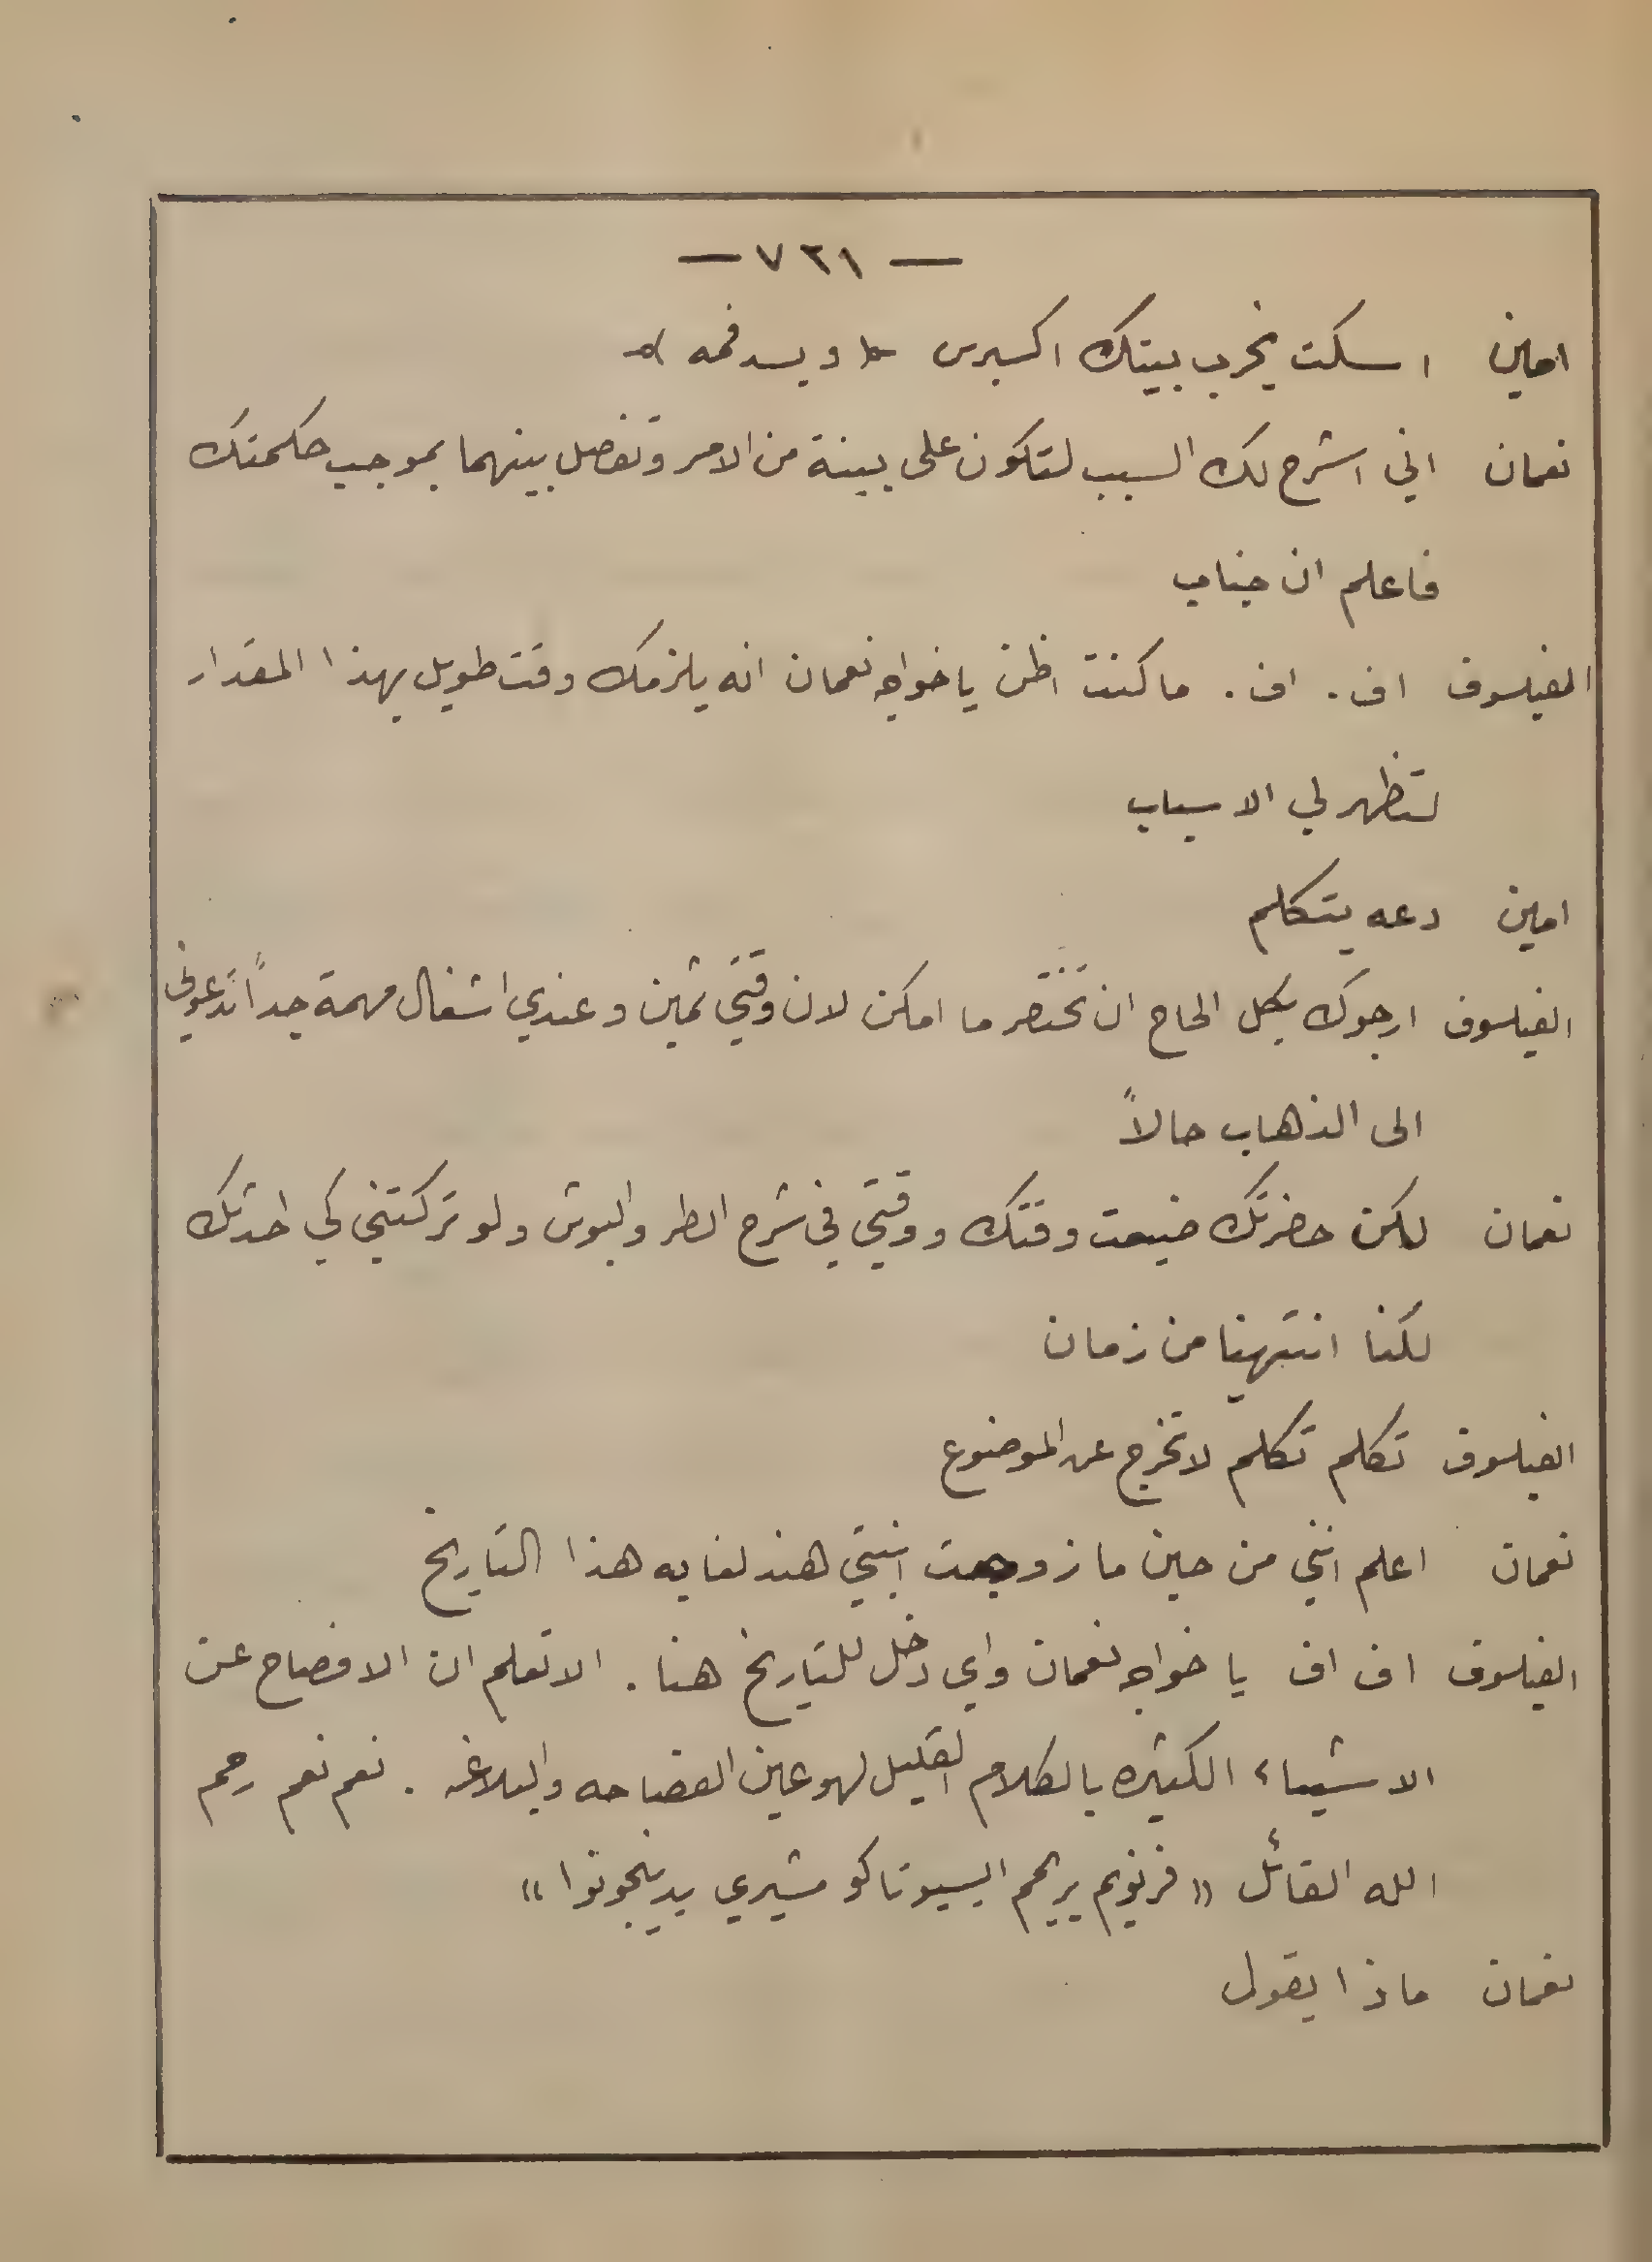 — ٧٢١ —
امين اسكت يخرب بيتك اكبرس ويسد فمه
نعمان اني اشرح لك السبب لتكون على بينة من الامر وتفصل بينهما بموجب حكمتك
فاعلم ان جناب
الفيلسوف اف . اف . ما كنت اظن يا خواجه نعمان انه يلزمك وقت طويل بهذا المقدار
لتظهر لي الاسباب
امين دعه يتكلم
الفيلسوف ارجوك بكل الحاح ان تختصر ما امكن لان وقتي ثمين وعندي اشغال مهمة جداً تدعوني
الى الذهاب حالاً
نعمان لكن حضرتك ضيعت وقتك ووقتي في شرح الطر والبوش ولو تركتني كي احدثك
لكنا انتهينا من زمان
الفيلسوف تكلم تكلم لا تخرج عن الموضوع
نعمان اعلم انني من حين ما زوجت ابنتي هند لغايه هذا التاريخ
الفيلسوف اف اف يا خواجه نعمان واي دخل للتاريخ هنا . الا تعلم ان الافصاح عن
الاشياء الكثيره بالكلام القليل لهو عين الفصاحه والبلاغه . نعم نعم رحم
الله القائل « فرنويم يريحم اليسيوتاكو مشيري يدينجونوا »
نعمان ماذا يقول